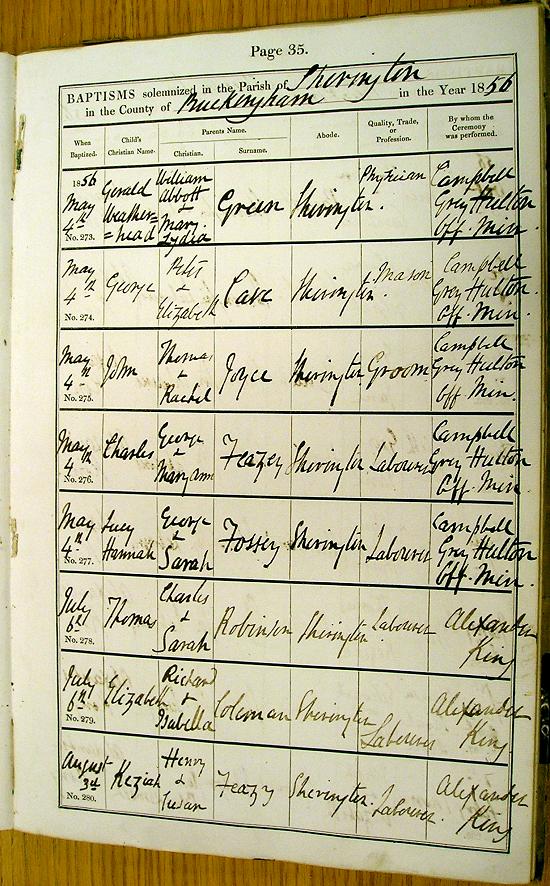 Page 35.
BAPTISMS solemnized in the Parish of Sherington
in the County of Buckingham in the Year 1856
When Baptized. Child's Christian Name. Parents Name. Christian. Surname. Abode. Quality, Trade, or Profession. By whom the Ceremony was performed.
1856 May 4th No. 273. Gerald Weather=head William Abbott & Mary Lydia Green Sherington. Physician Campbell Grey Hulton Off. Min.
May 4th No. 274. George Peter & Elizabeth Cave Sherington. Mason Campbell Grey Hulton. Off. Min.
May 4th No. 275. John Thomas & Rachel Joyce Sherington Groom Campbell Grey Hulton Off. Min.
May 4th No. 276. Charles George & Maryann Feazey Sherington Labourer Campbell Grey Hulton Off. Min.
May 4th No. 277. Lucy Hannah George & Sarah Fossey Sherington Labourer Campbell Grey Hulton Off. Min.
July 6th No. 278. Thomas Charles & Sarah Robinson Sherington Labourer Alexander King
July 6th No. 279. Elizabeth Richard & Isabella Coleman Sherington Labourer Alexander King
August 3d No. 280. Keziah Henry & Susan Feazey Sherington. Labourer. Alexander King